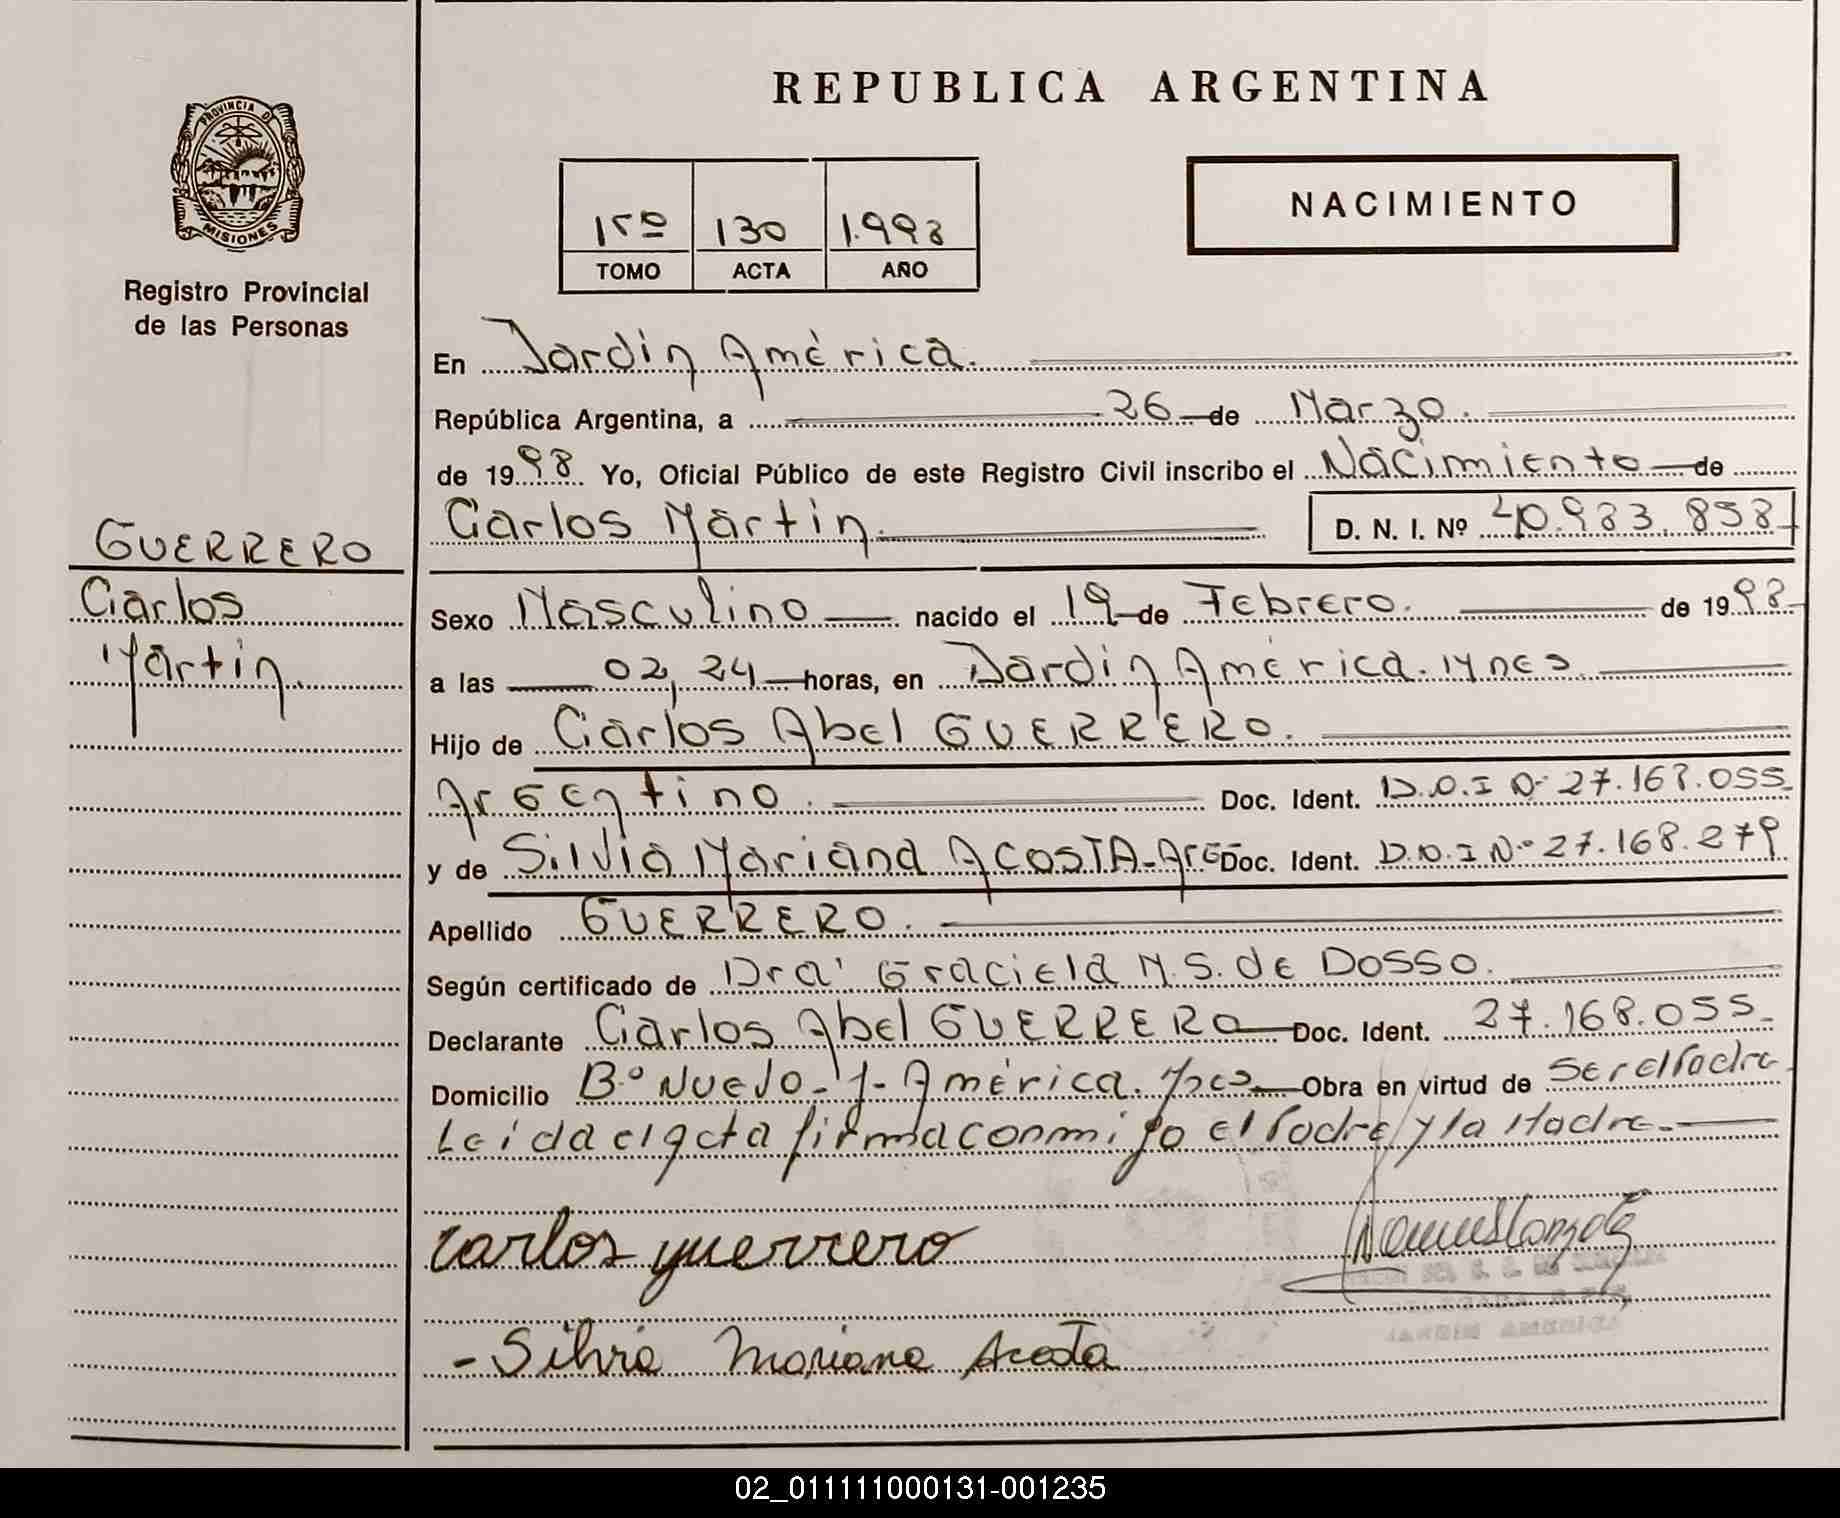 REPUBLICA ARGENTINA
PROVINCIA DE
MISIONES
Registro Provincial
de las Personas
1rº 130 1.998
TOMO ACTA AÑO
NACIMIENTO
En Jardin América.
República Argentina, a 26 de Marzo.
de 1998 Yo, Oficial Público de este Registro Civil inscribo el Nacimiento de
Carlos Martin. D. N. I. Nº 40.983.858
GUERRERO
Carlos
Martin.
Sexo Masculino nacido el 19 de Febrero. de 1998
a las 02,24 horas, en Jardin América. Mnes.
Hijo de Carlos Abel GUERRERO.
Argentino. Doc. Ident. D.N.I Nº 27.168.055
y de Silvia Mariana ACOSTA-Arg Doc. Ident. D.N.I Nº 27.168.279
Apellido GUERRERO.
Según certificado de Dra' Graciela M.S. de DOSSO.
Declarante Carlos Abel GUERRERO Doc. Ident. 27.168.055
Domicilio Bº Nuevo-J-América. Mnes Obra en virtud de Ser el Padre
Leida el acta firma conmigo el Padre y la Madre.
Carlos guerrero
-Silvia Mariana Acosta
JARDIN AMERICA
02_011111000131-001235